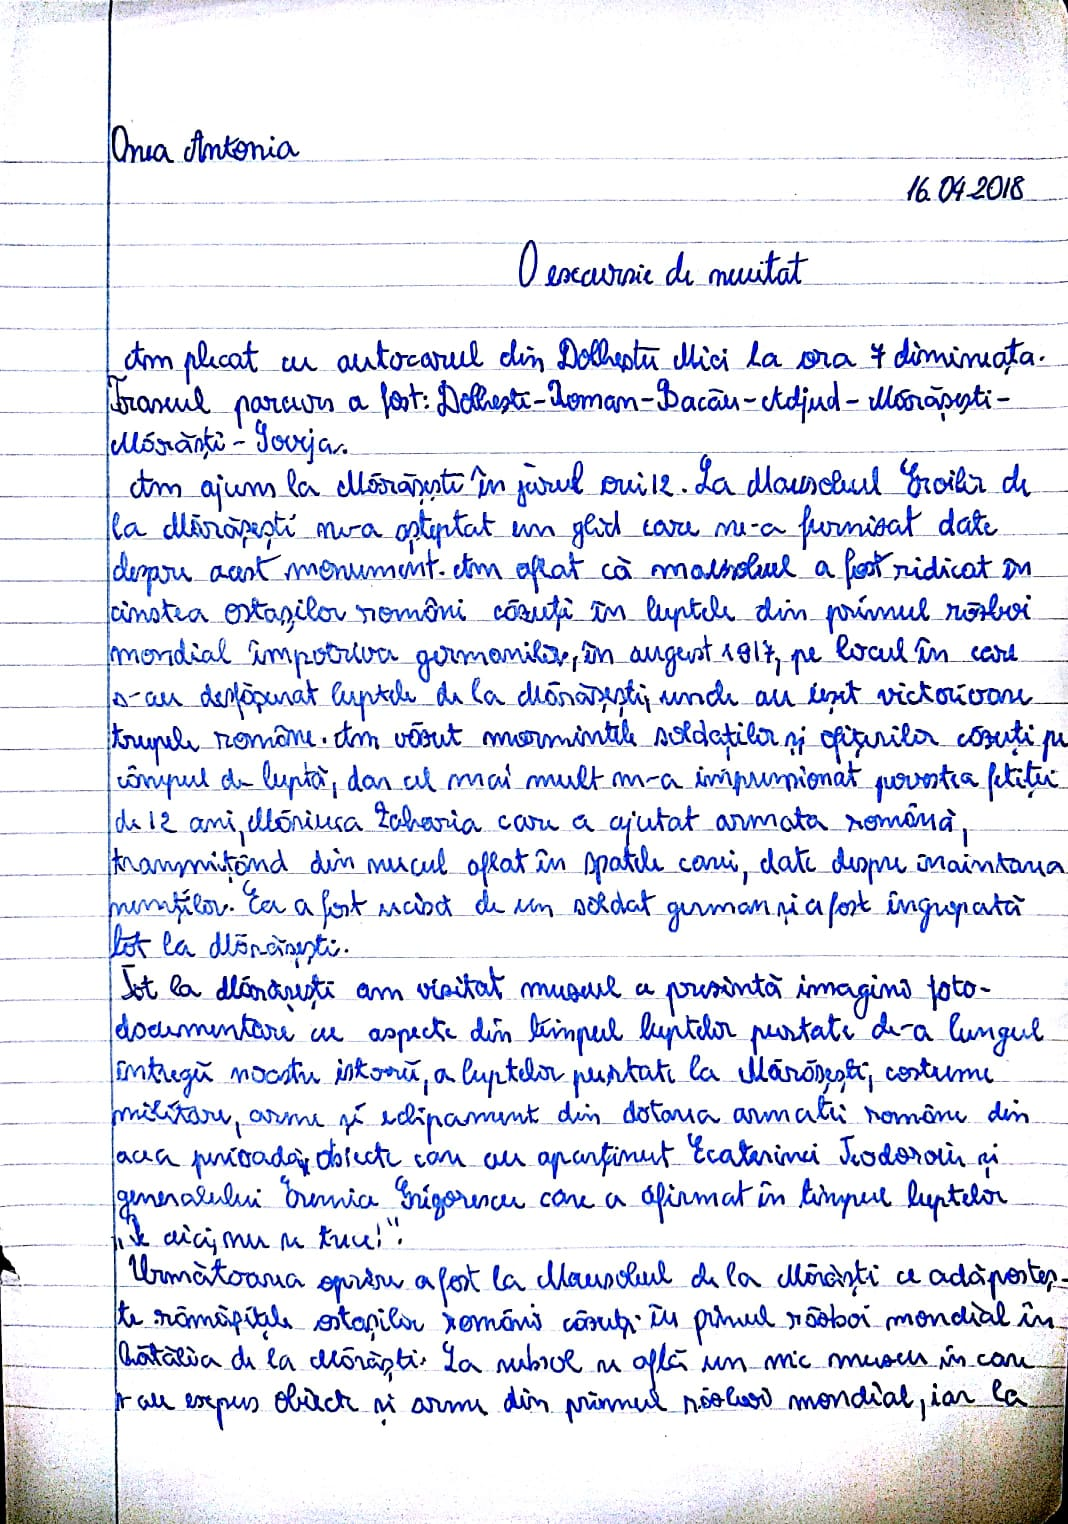 Onea Antonia
16.04.2018
O excursie de neuitat
Am plecat cu autocarul din Dolheștii Mici la ora 7 dimineața.
Traseul parcurs a fost: Dolhești-Roman-Bacău-Adjud-Mărășești-
Mărăști-Soveja.
Am ajuns la Mărășești în jurul orei 12. La Mausoleul Eroilor de
la Mărășești ne-a așteptat un ghid care ne-a furnizat date
despre acest monument. Am aflat că mausoleul a fost ridicat în
cinstea ostașilor români căzuți în luptele din primul război
mondial împotriva germanilor, în august 1917, pe locul în care
s-au desfășurat luptele de la Mărășești, unde au ieșit victorioase
trupele române. Am văzut mormintele soldaților și ofițerilor căzuți pe
câmpul de luptă, dar cel mai mult m-a impresionat povestea fetiței
de 12 ani, Măriuca Zaharia care a ajutat armata română,
transmițând din nucul aflat în spatele casei, date despre înaintarea
nemților. Ea a fost ucisă de un soldat german și a fost îngropată
tot la Mărășești.
Tot la Mărășești am vizitat muzeul ce prezintă imagini foto-
documentare cu aspecte din timpul luptelor purtate de-a lungul
întregii noastre istorii, a luptelor purtate la Mărășești, costume
militare, arme și echipament din dotarea armatei române din
acea perioadă, obiecte care au aparținut Ecaterinei Teodoroiu și
generalului Eremia Grigorescu care a afirmat în timpul luptelor
„Pe aici, nu se trece!".
Următoarea oprire a fost la Mausoleul de la Mărăști ce adăpostеș-
te rămășițele ostașilor români căzuți în primul război mondial în
bătălia de la Mărăști. La subsol se află un mic muzeu în care
s-au expus obiecte și arme din primul război mondial, iar la